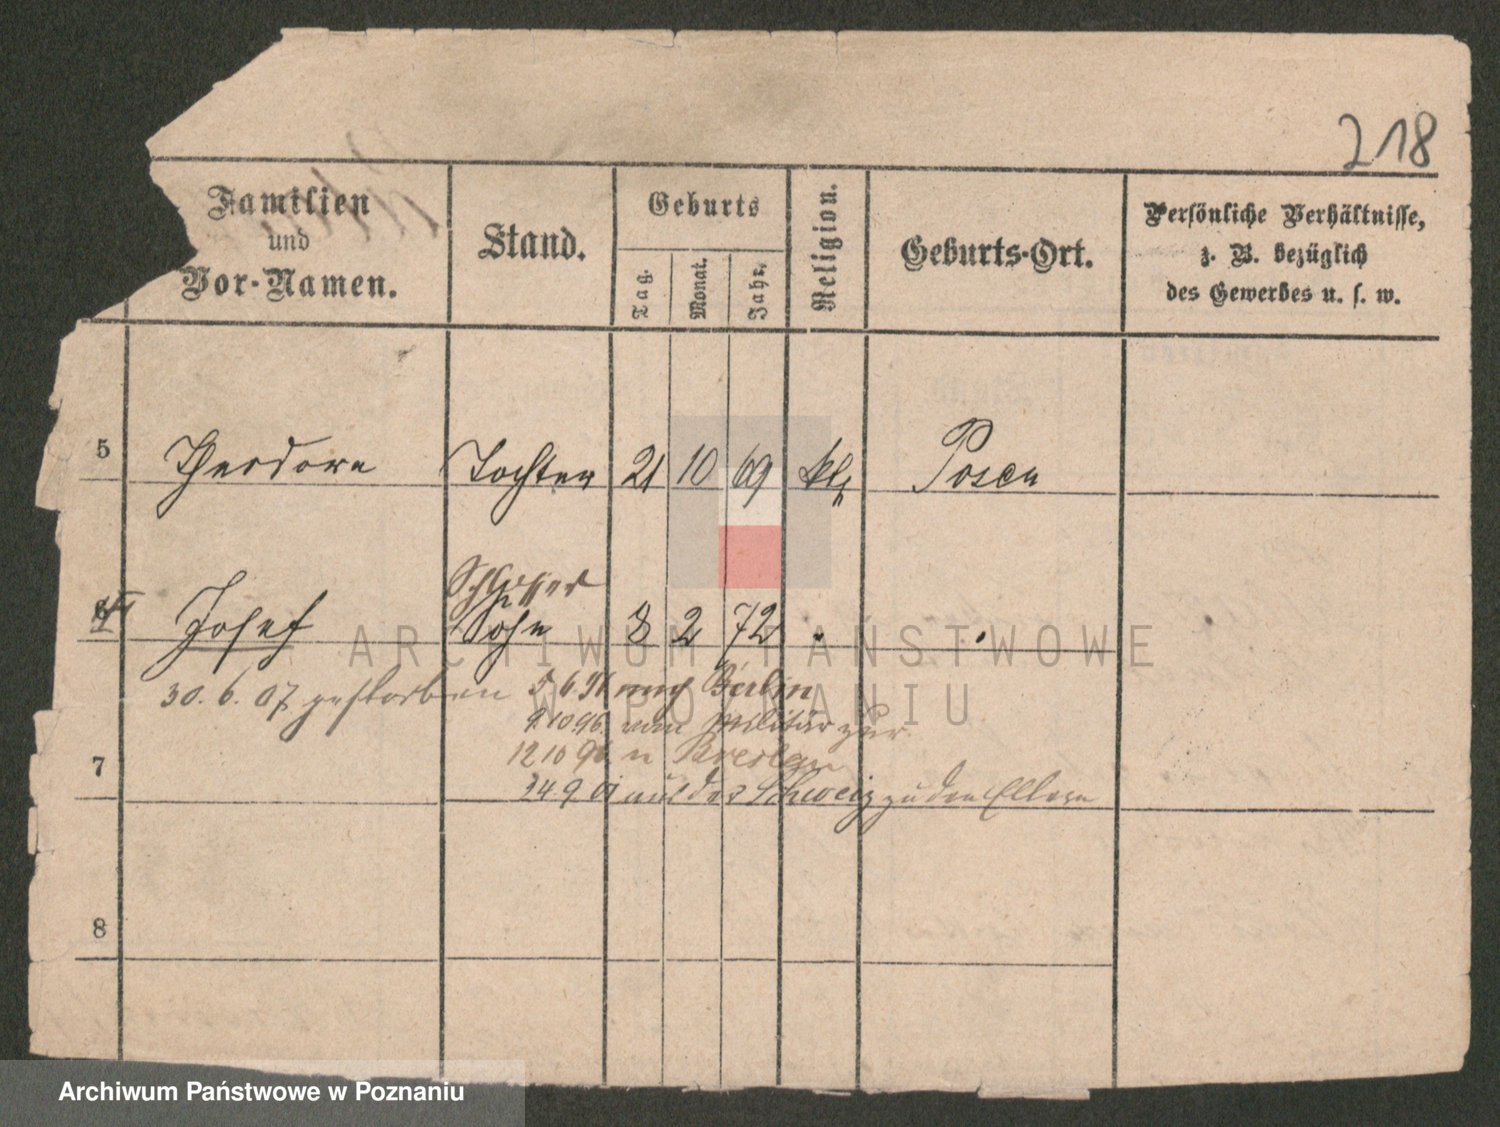 218
Familien und Vor-Namen.
Stand.
Geburts
Tag.
Monat.
Jahr.
Religion.
Geburts-Ort.
Persönliche Verhältnisse,
z. B. bezüglich
des Gewerbes u. s. w.
5 Theodora Tochter 21 10 69 kth Posen
Schlosser
Josef Sohn 8 2 72 " "
30. 6. 07 gestorben
5.6.91 nach Berlin
9.10.96. vom Militär zur.
12 10 96 n Breslau
7
24 9 01 aus der Schweiz zu den Eltern
8
ARCHIWUM PAŃSTWOWE
W POZNANIU
Archiwum Państwowe w Poznaniu